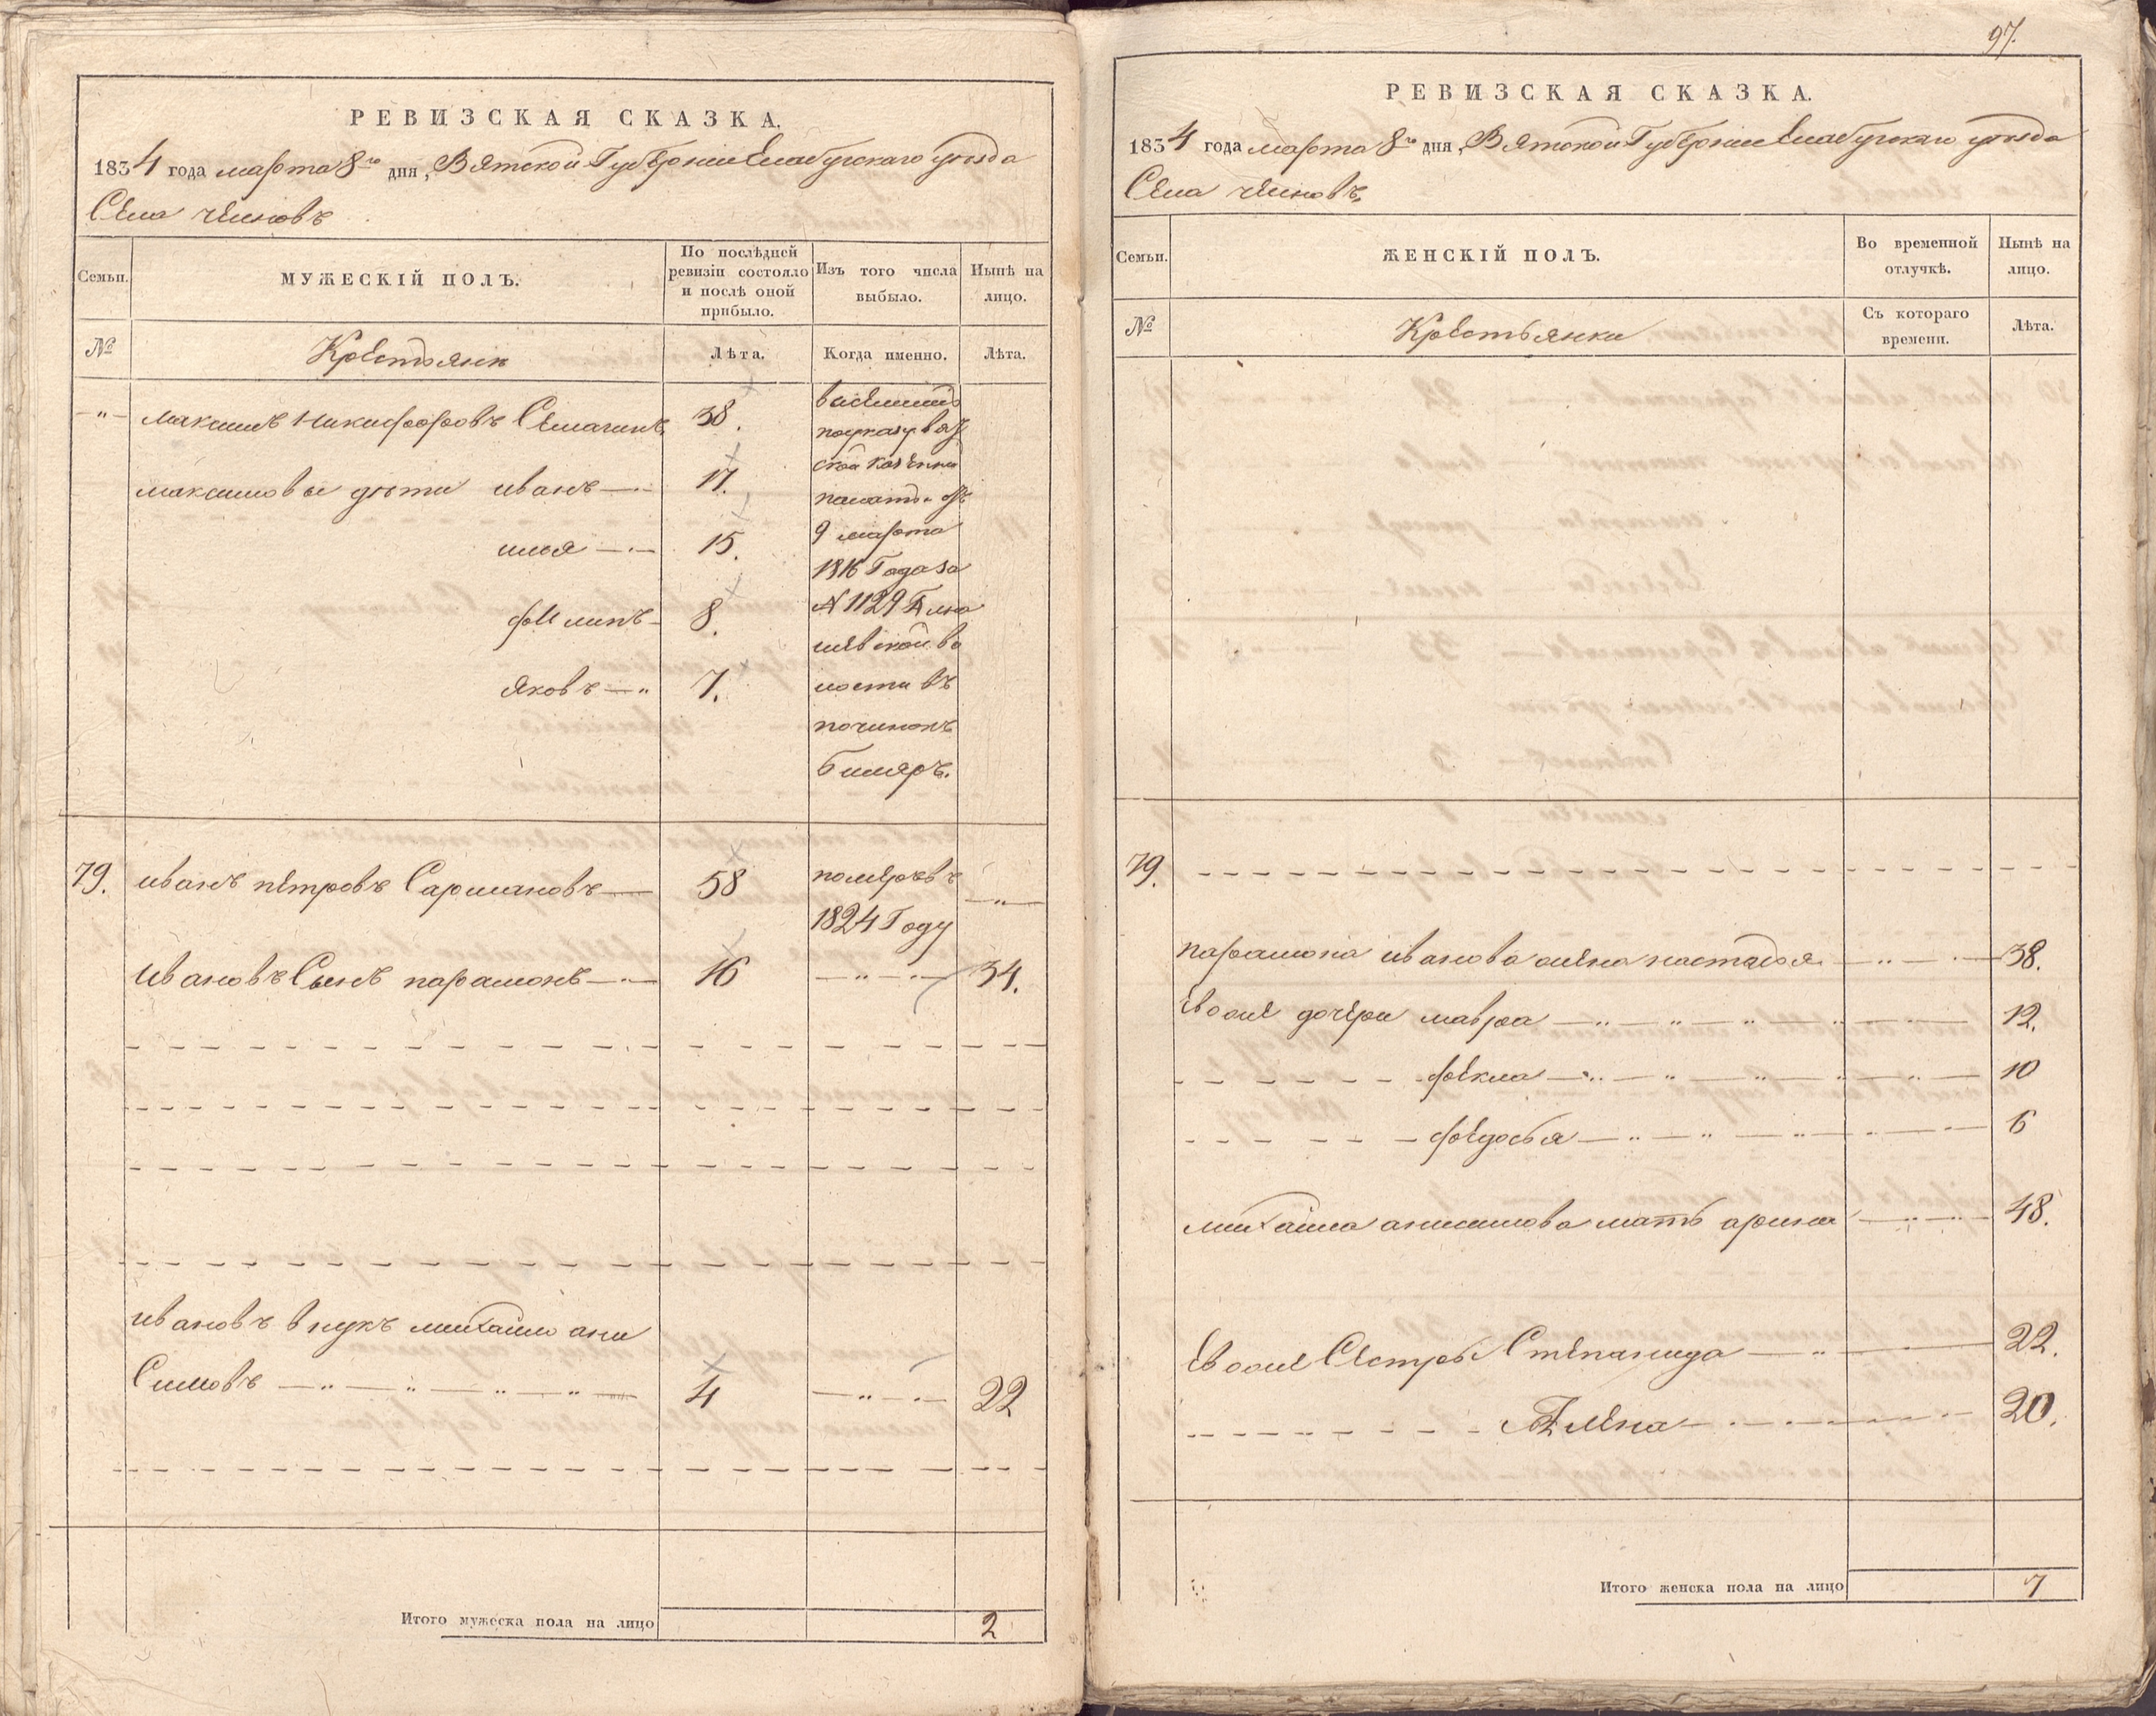 РЕВИЗСКАЯ СКАЗКА.
1834 года марта 8го дня, Вятской Губернии Елабугскаго уезда
Села
Семьи.
МУЖЕСКІЙ ПОЛЪ.
По послѣдней ревизіи состояло и послѣ оной прибыло.
Изъ того числа выбыло.
Нынѣ на лицо.
№
Крестьяне
Лѣта.
Когда именно.
Лѣта.
максимъ никифоровъ 38.
максимовы дѣти иванъ 17.
илья 15.
филипъ 8.
яковъ 7.
по указу вят
ской казенной
палаты отъ
9 марта
1816 Года за
№ 1129
ской во
лости въ
починокъ
биляръ.
79. иванъ петровъ Сармановъ 58 померъ въ
1824 Году
ивановъ Сынъ парамонъ 16 34.
ивановъ внукъ михайло ани
Симовъ 4 22
Итого мужеска пола на лицо 2
97.
РЕВИЗСКАЯ СКАЗКА.
1834 года марта 8го дня, Вятской Губернии Елабугскаго уезда
Села
Семьи.
ЖЕНСКІЙ ПОЛЪ.
Во временной отлучкѣ.
Нынѣ на лицо.
№
Крестьянки
Съ котораго времени.
Лѣта.
79.
парамона иванова жена настасья 38.
Евоже дочери мавра 12.
фекла 10
федосья 6
михайла анисимова мать арина 48.
Евоже Сестры Степанида 22.
Алена 20.
Итого женска пола на лицо 7